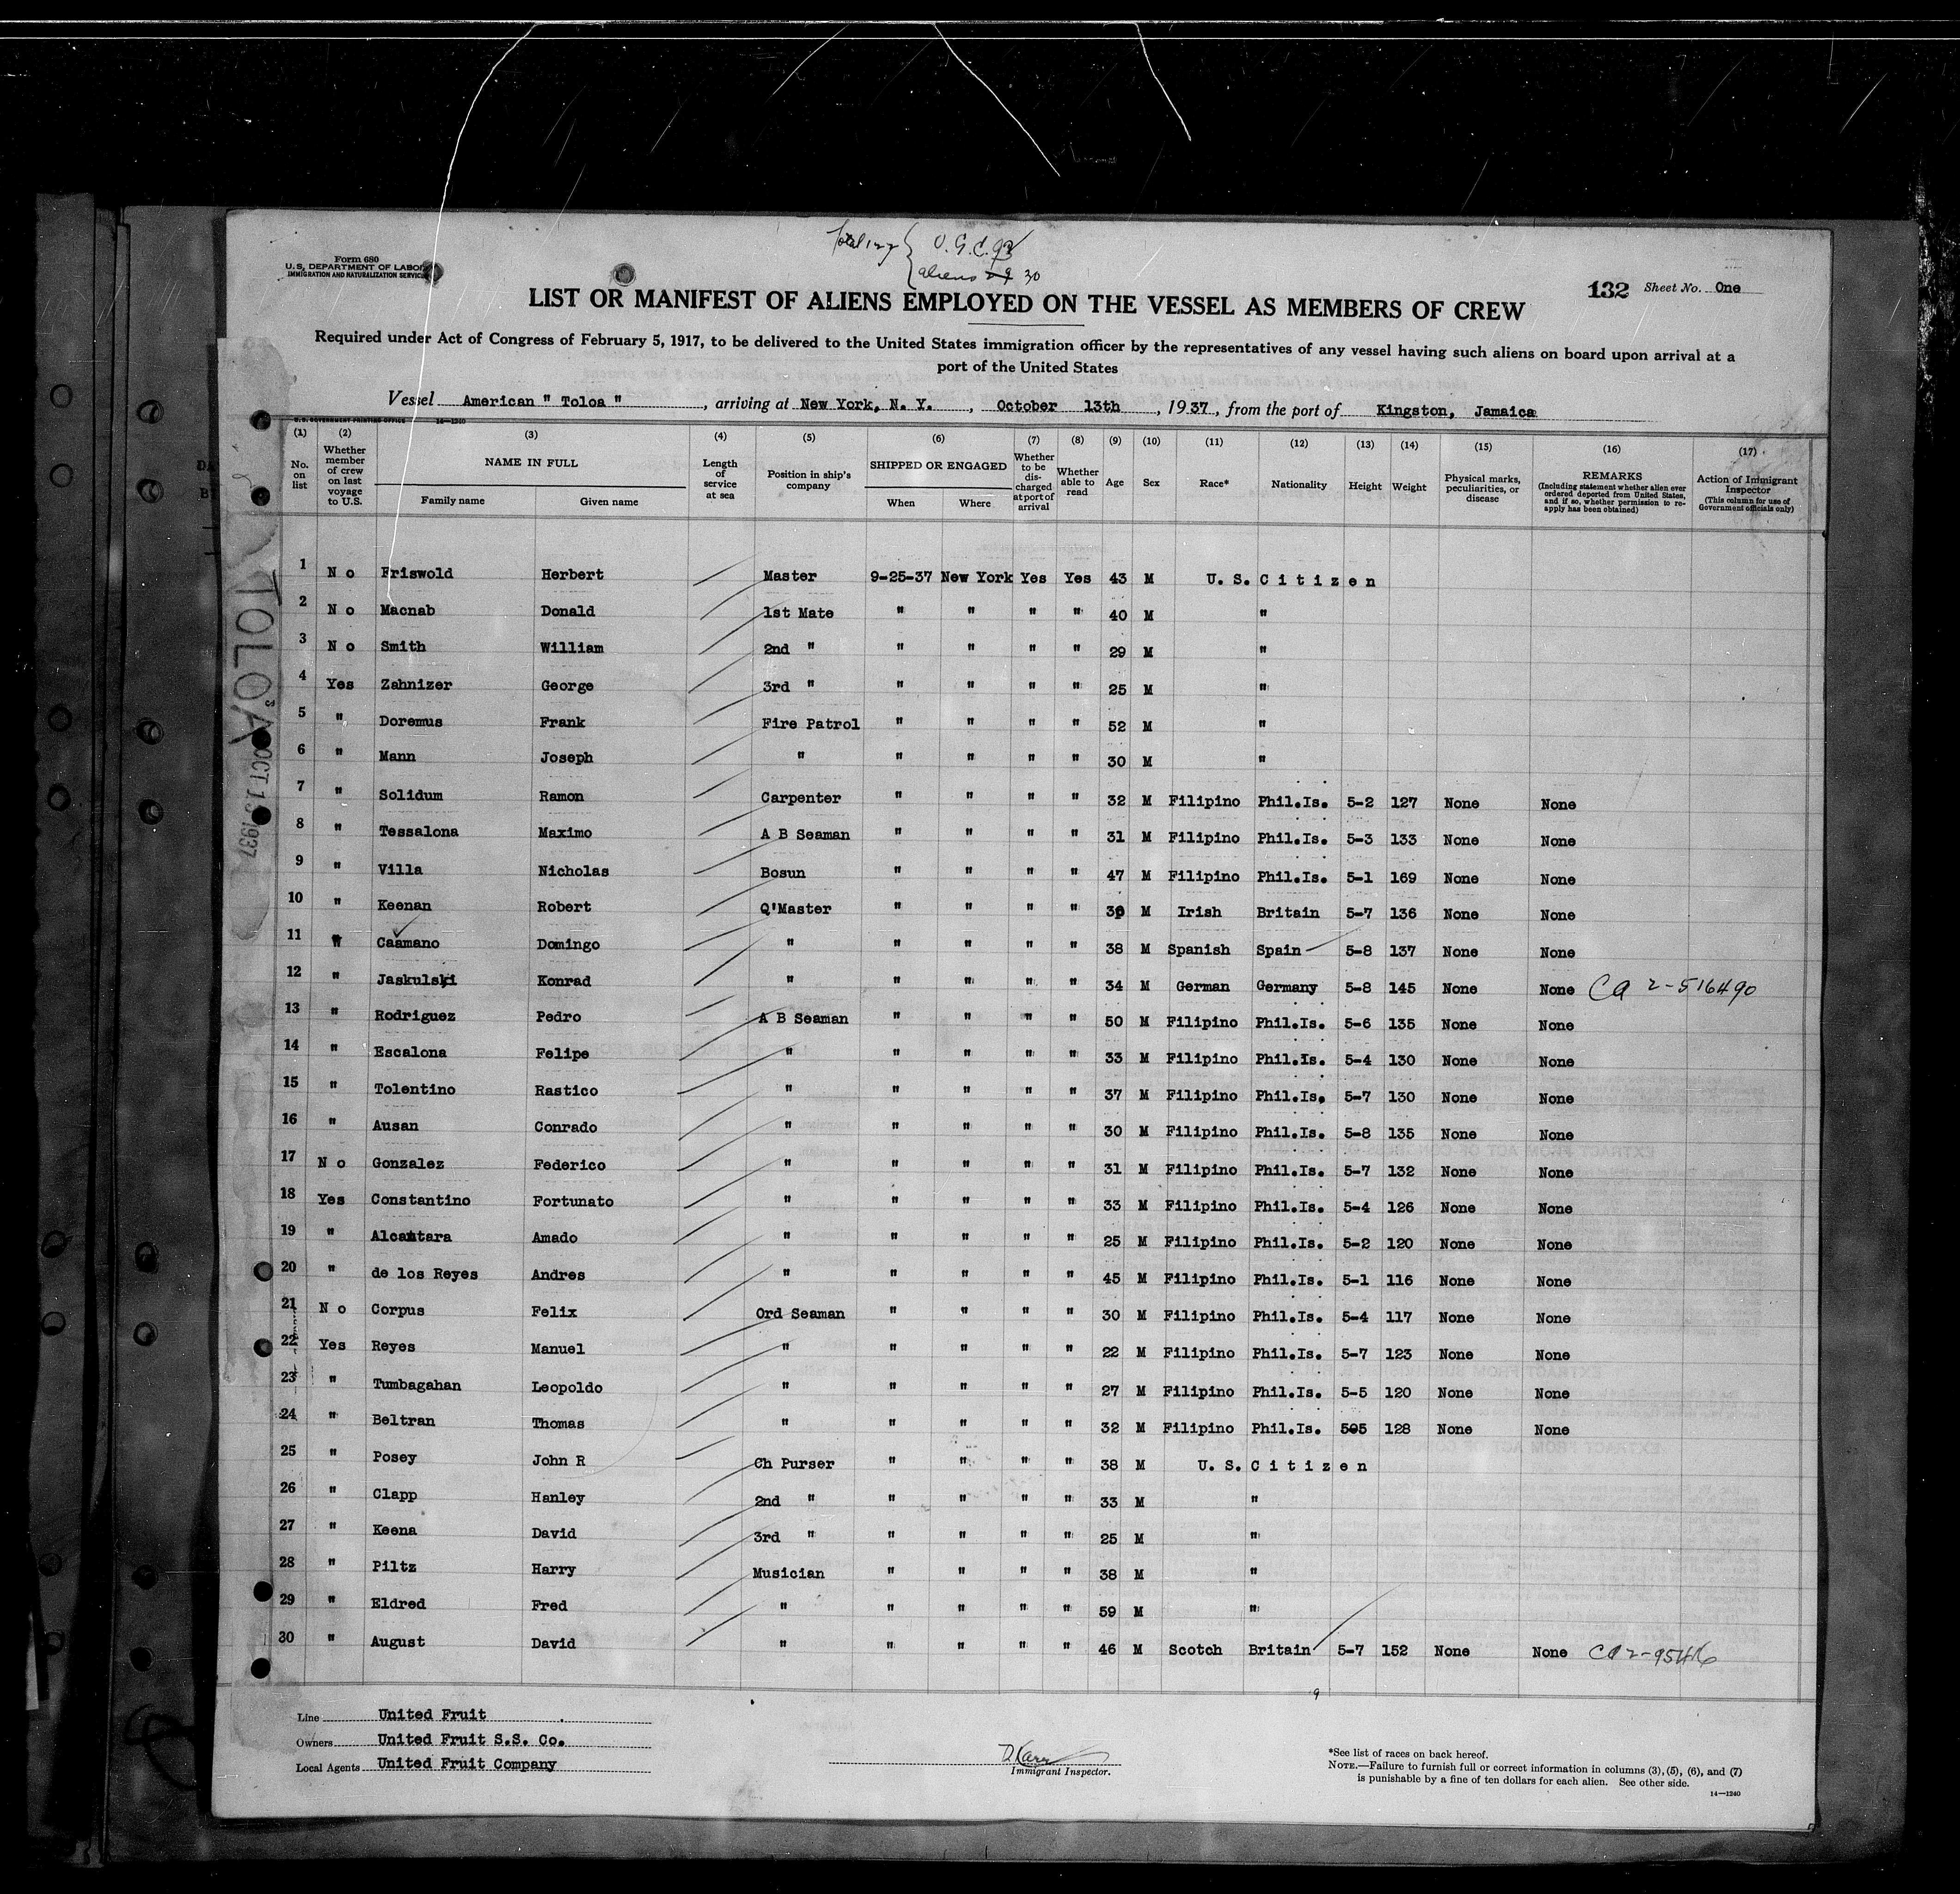 Form 680
U. S. DEPARTMENT OF LABOR
IMMIGRATION AND NATURALIZATION SERVICE
U. S. C. 92
aliens 29 30
132 Sheet No. One
LIST OR MANIFEST OF ALIENS EMPLOYED ON THE VESSEL AS MEMBERS OF CREW
Required under Act of Congress of February 5, 1917, to be delivered to the United States immigration officer by the representatives of any vessel having such aliens on board upon arrival at a
port of the United States
Vessel American " Toloa ", arriving at New York, N. Y., October 13th, 1937, from the port of Kingston, Jamaica
U. S. GOVERNMENT PRINTING OFFICE 14—1240
(1) No. on list
(2) Whether member of crew on last voyage to U.S.
(3) NAME IN FULL Family name Given name
(4) Length of service at sea
(5) Position in ship's company
(6) SHIPPED OR ENGAGED When Where
(7) Whether to be discharged at port of arrival
(8) Whether able to read
(9) Age
(10) Sex
(11) Race*
(12) Nationality
(13) Height
(14) Weight
(15) Physical marks, peculiarities, or disease
(16) REMARKS (Including statement whether alien ever ordered deported from United States, and if so, whether permission to reapply has been obtained)
(17) Action of Immigrant Inspector (This column for use of Government officials only)
1 No Friswold Herbert Master 9-25-37 New York Yes Yes 43 M U. S. Citizen
2 No Macnab Donald 1st Mate " " " " 40 M "
3 No Smith William 2nd " " " " " 29 M "
4 Yes Zahnizer George 3rd " " " " " 25 M "
5 " Doremus Frank Fire Patrol " " " " 52 M "
6 " Mann Joseph " " " " " 30 M "
7 " Solidum Ramon Carpenter " " " " 32 M Filipino Phil.Is. 5-2 127 None None
8 " Tessalona Maximo A B Seaman " " " " 31 M Filipino Phil.Is. 5-3 133 None None
9 " Villa Nicholas Bosun " " " " 47 M Filipino Phil.Is. 5-1 169 None None
10 " Keenan Robert Q'Master " " " " M Irish Britain 5-7 136 None None
11 " Caamano Domingo " " " " " 38 M Spanish Spain 5-8 137 None None
12 " Jaskulski Konrad " " " " " 34 M German Germany 5-8 145 None None CA 2-516490
13 " Rodriguez Pedro A B Seaman " " " " 50 M Filipino Phil.Is. 5-6 135 None None
14 " Escalona Felipe " " " " " 33 M Filipino Phil.Is. 5-4 130 None None
15 " Tolentino Rastico " " " " " 37 M Filipino Phil.Is. 5-7 130 None None
16 " Ausan Conrado " " " " " 30 M Filipino Phil.Is. 5-8 135 None None
17 No Gonzalez Federico " " " " " 31 M Filipino Phil.Is. 5-7 132 None None
18 Yes Constantino Fortunato " " " " " 33 M Filipino Phil.Is. 5-4 126 None None
19 " Alcantara Amado " " " " " 25 M Filipino Phil.Is. 5-2 120 None None
20 " de los Reyes Andres " " " " " 45 M Filipino Phil.Is. 5-1 116 None None
21 No Corpus Felix Ord Seaman " " " " 30 M Filipino Phil.Is. 5-4 117 None None
22 Yes Reyes Manuel " " " " " 22 M Filipino Phil.Is. 5-7 123 None None
23 " Tumbagahan Leopoldo " " " " " 27 M Filipino Phil.Is. 5-5 120 None None
24 " Beltran Thomas " " " " " 32 M Filipino Phil.Is. 505 128 None None
25 " Posey John R Ch Purser " " " " 38 M U. S. Citizen
26 " Clapp Hanley 2nd " " " " " 33 M "
27 " Keena David 3rd " " " " " 25 M "
28 " Piltz Harry Musician " " " " 38 M "
29 " Eldred Fred " " " " " 59 M "
30 " August David " " " " " 46 M Scotch Britain 5-7 152 None None
TOLOA
OCT 13 1937
Line United Fruit
Owners United Fruit S.S. Co.
Local Agents United Fruit Company
Immigrant Inspector.
*See list of races on back hereof.
NOTE.—Failure to furnish full or correct information in columns (3), (5), (6), and (7)
is punishable by a fine of ten dollars for each alien. See other side.
14—1240